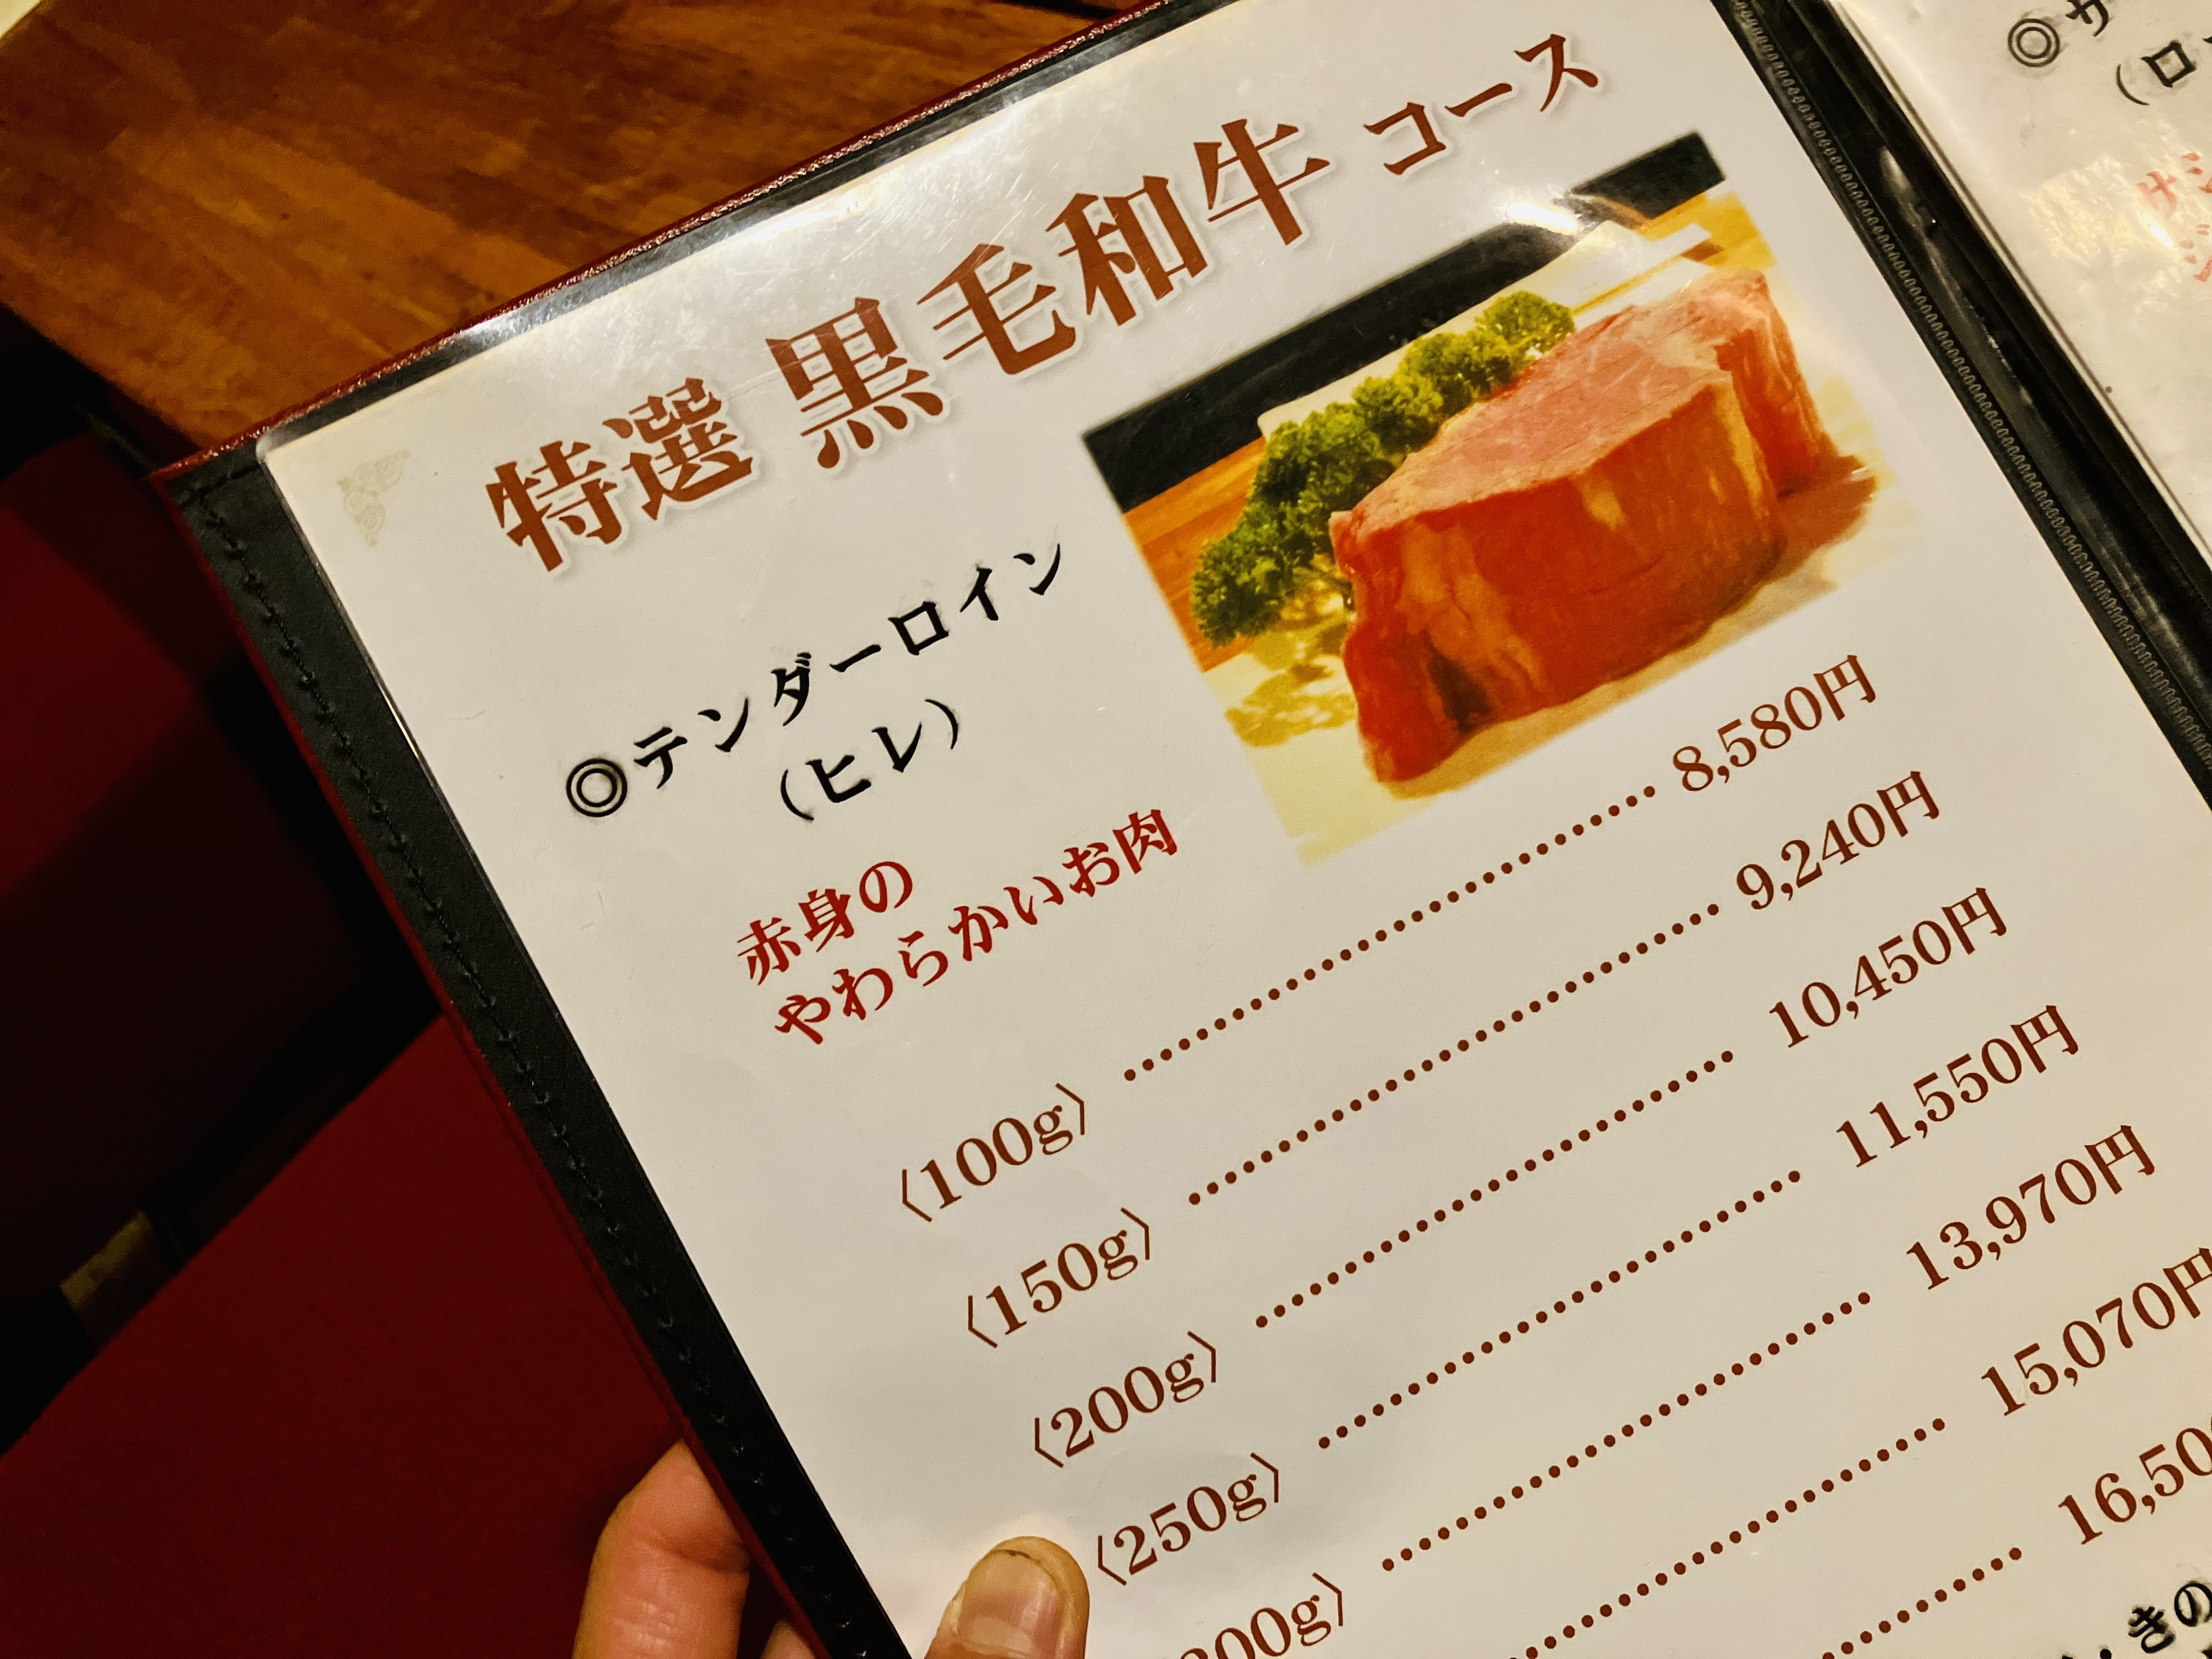 特選 黒毛和牛 コース
◎テンダーロイン
（ヒレ）
赤身の
やわらかいお肉
〈100g〉 8,580円
〈150g〉 9,240円
〈200g〉 10,450円
〈250g〉 11,550円
00g〉 13,970円
15,070円
16,50
きの
◎サ
（ロ
サシ